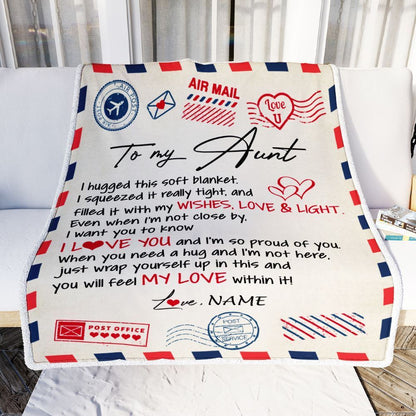 AIR MAIL
Love U
To my Aunt
I hugged this soft blanket.
I squeezed it really tight, and
filled it with my WISHES, LOVE & LIGHT.
Even when I'm not close by,
I want you to know
I LOVE YOU and I'm so proud of you.
When you need a hug and I'm not here,
just wrap yourself up in this and
you will feel MY LOVE within it!
Love, NAME
POST OFFICE
POST
SERVICE